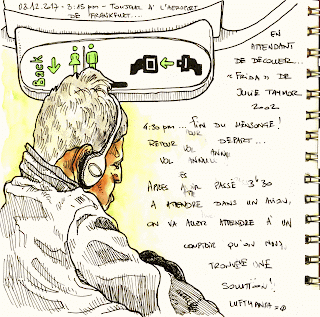 03.12.2017 - 3:15 pm - Toujours à l'aéroport
de Frankfurt...
Back
En
attendant
de décoller...
« Frida » de
Julie Taymor
2002
4:30 pm ... Fin du mensonge!
Retour départ...
Vol annulé
Après avoir passé 3h30
à attendre dans un avion,
on va aller attendre à un
comptoir qu'on nous
trouve une
solution!
Lufthansa =